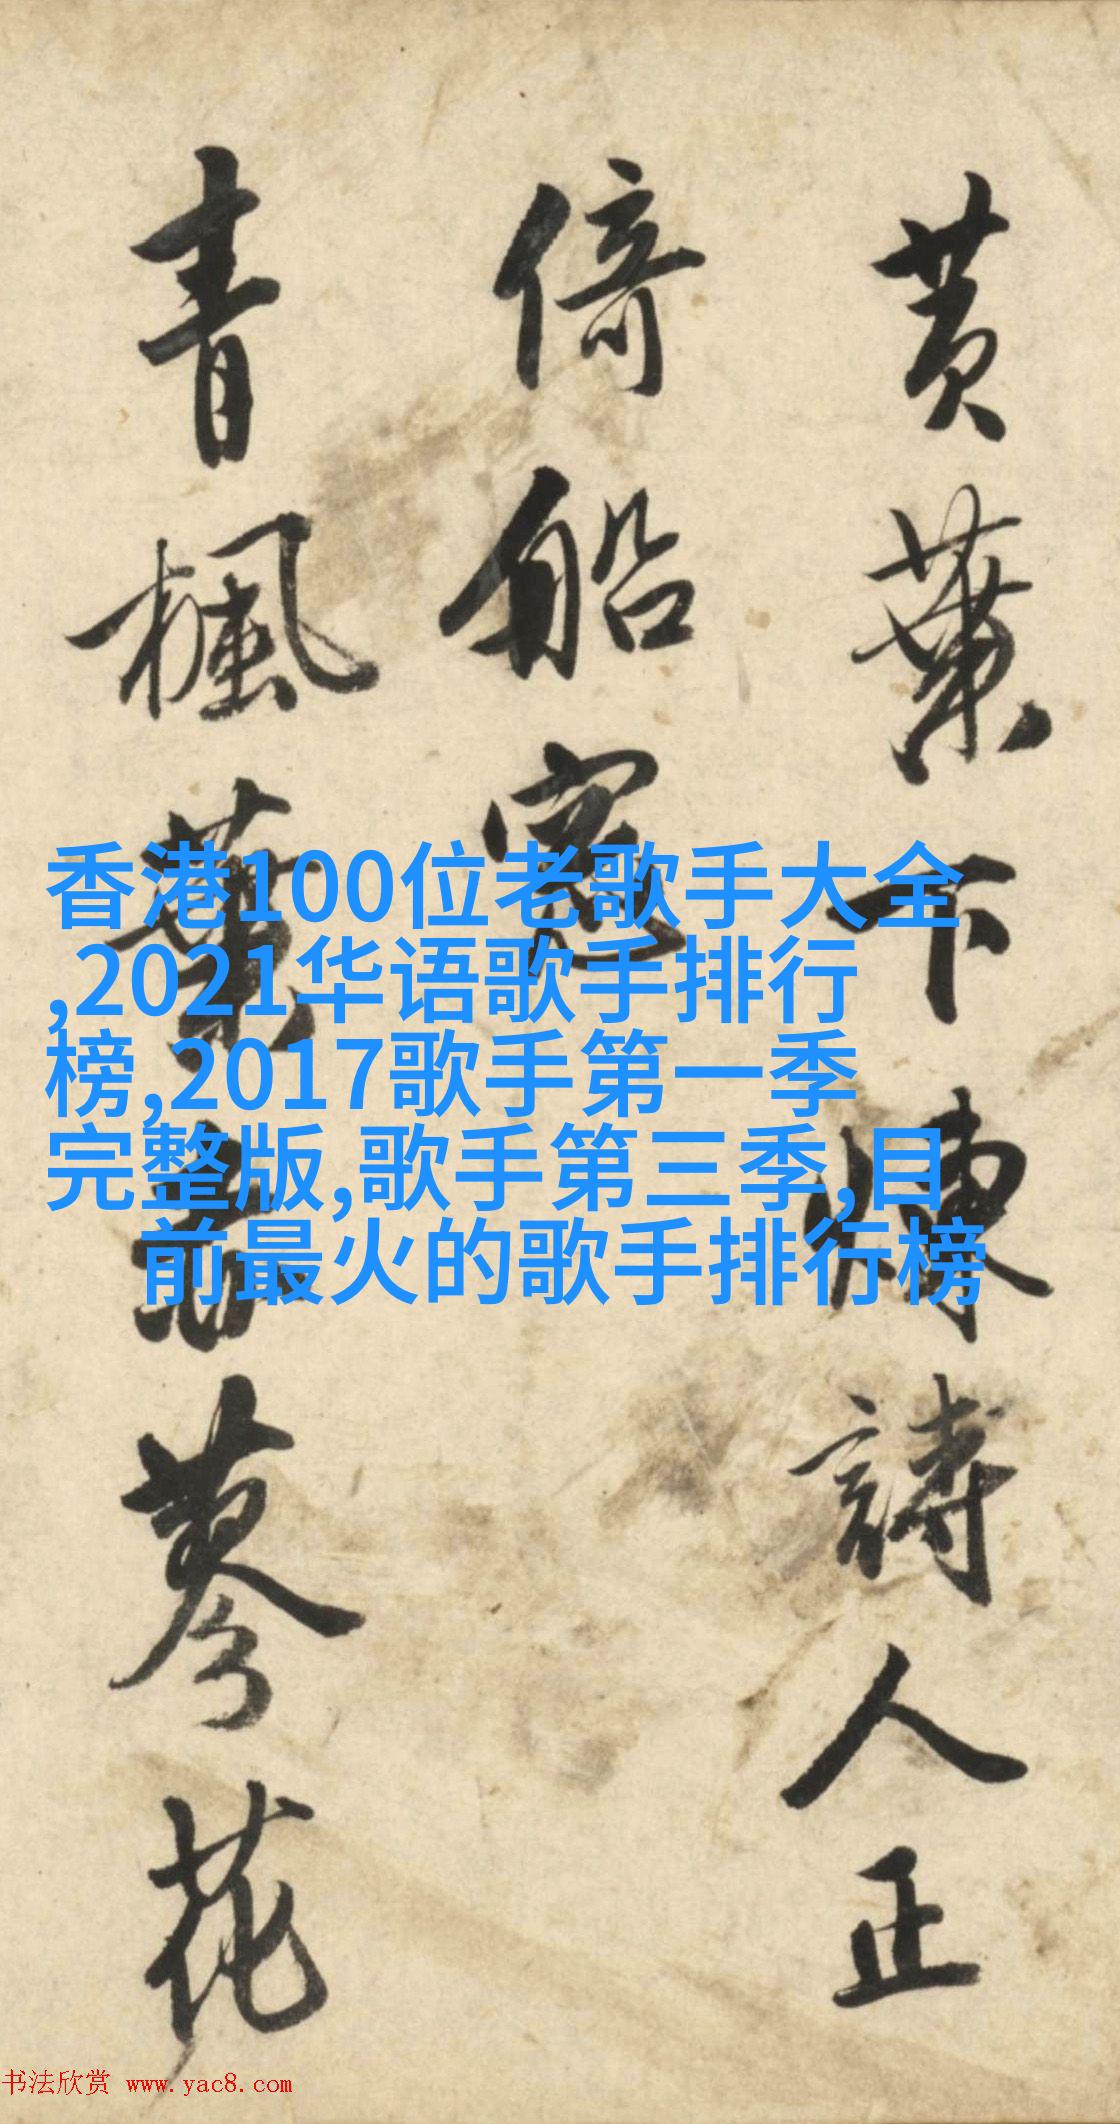 黄葉下詩人正
倚船窓
青楓葉蓼花
香港100位老歌手大全
,2021华语歌手排行
榜,2017歌手第一季
完整版,歌手第三季,目
前最火的歌手排行榜
书法欣赏 www.yac8.com